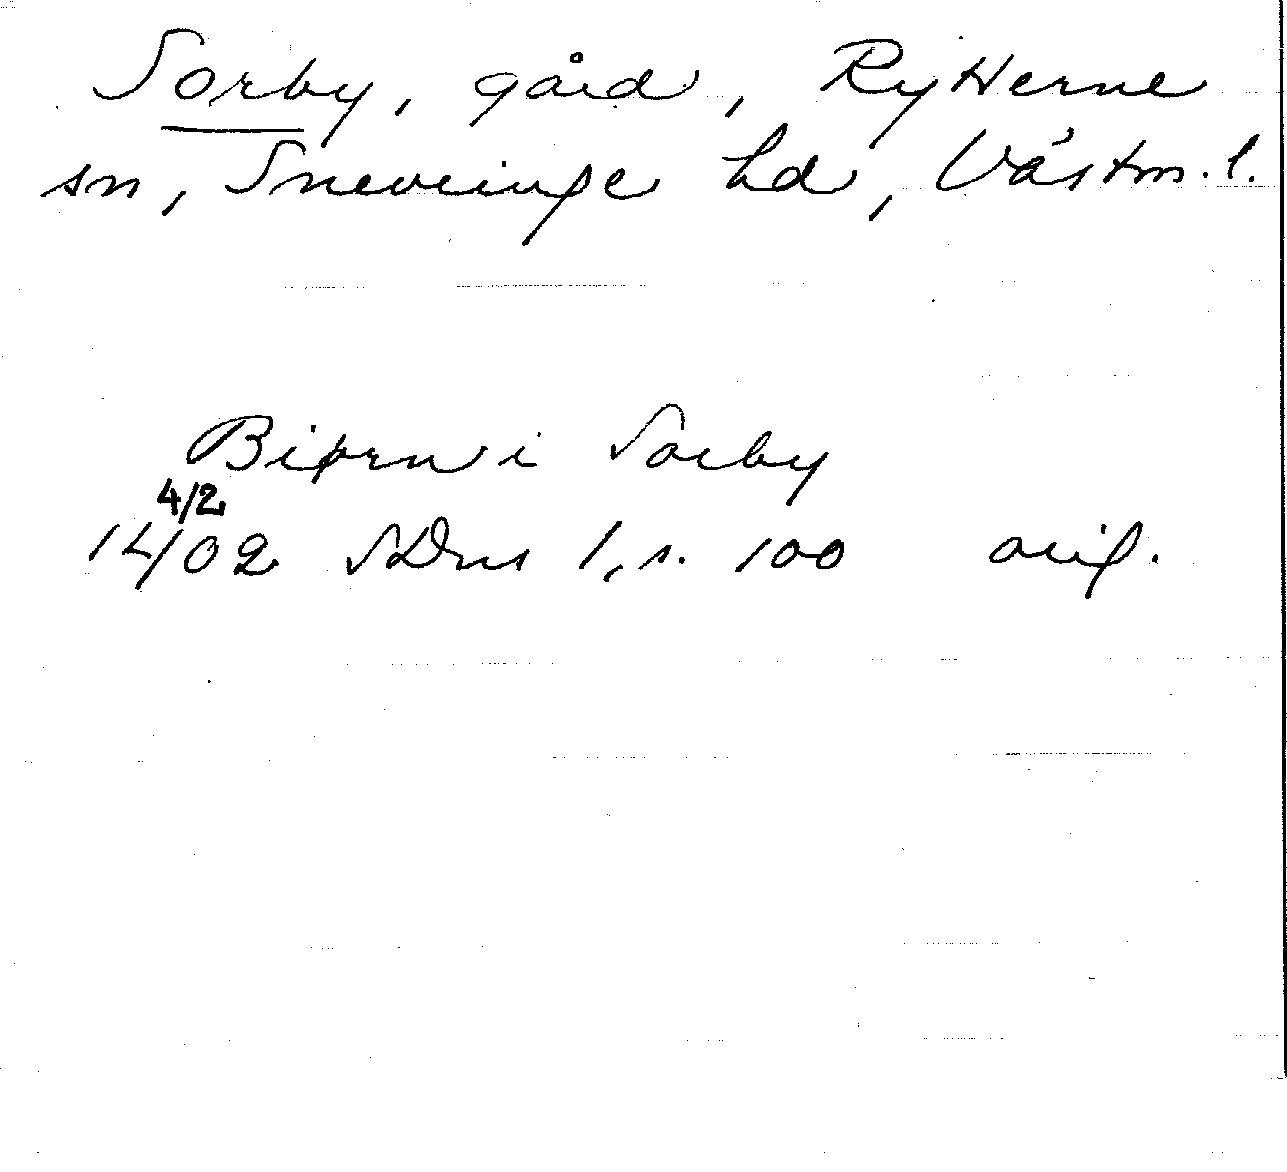 Sorby, gård, Rytterne
sn, Snevringe hd, Västm. l.
Biørn i Sorby
4/2
14/02 SDns 1, s. 100 orig.